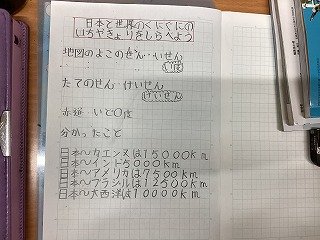 日本と世界のくにぐにの
いちやきょりをしらべよう
地図のよこのせん‥いせん
い度
たてのせん‥けいせん
けいせん
赤道 いど0度
分かったこと
日本〜カエンヌは15000km
日本〜インド5000km
日本〜アメリカは7500km
日本〜ブラジルは12500km
日本〜大西洋は10000km